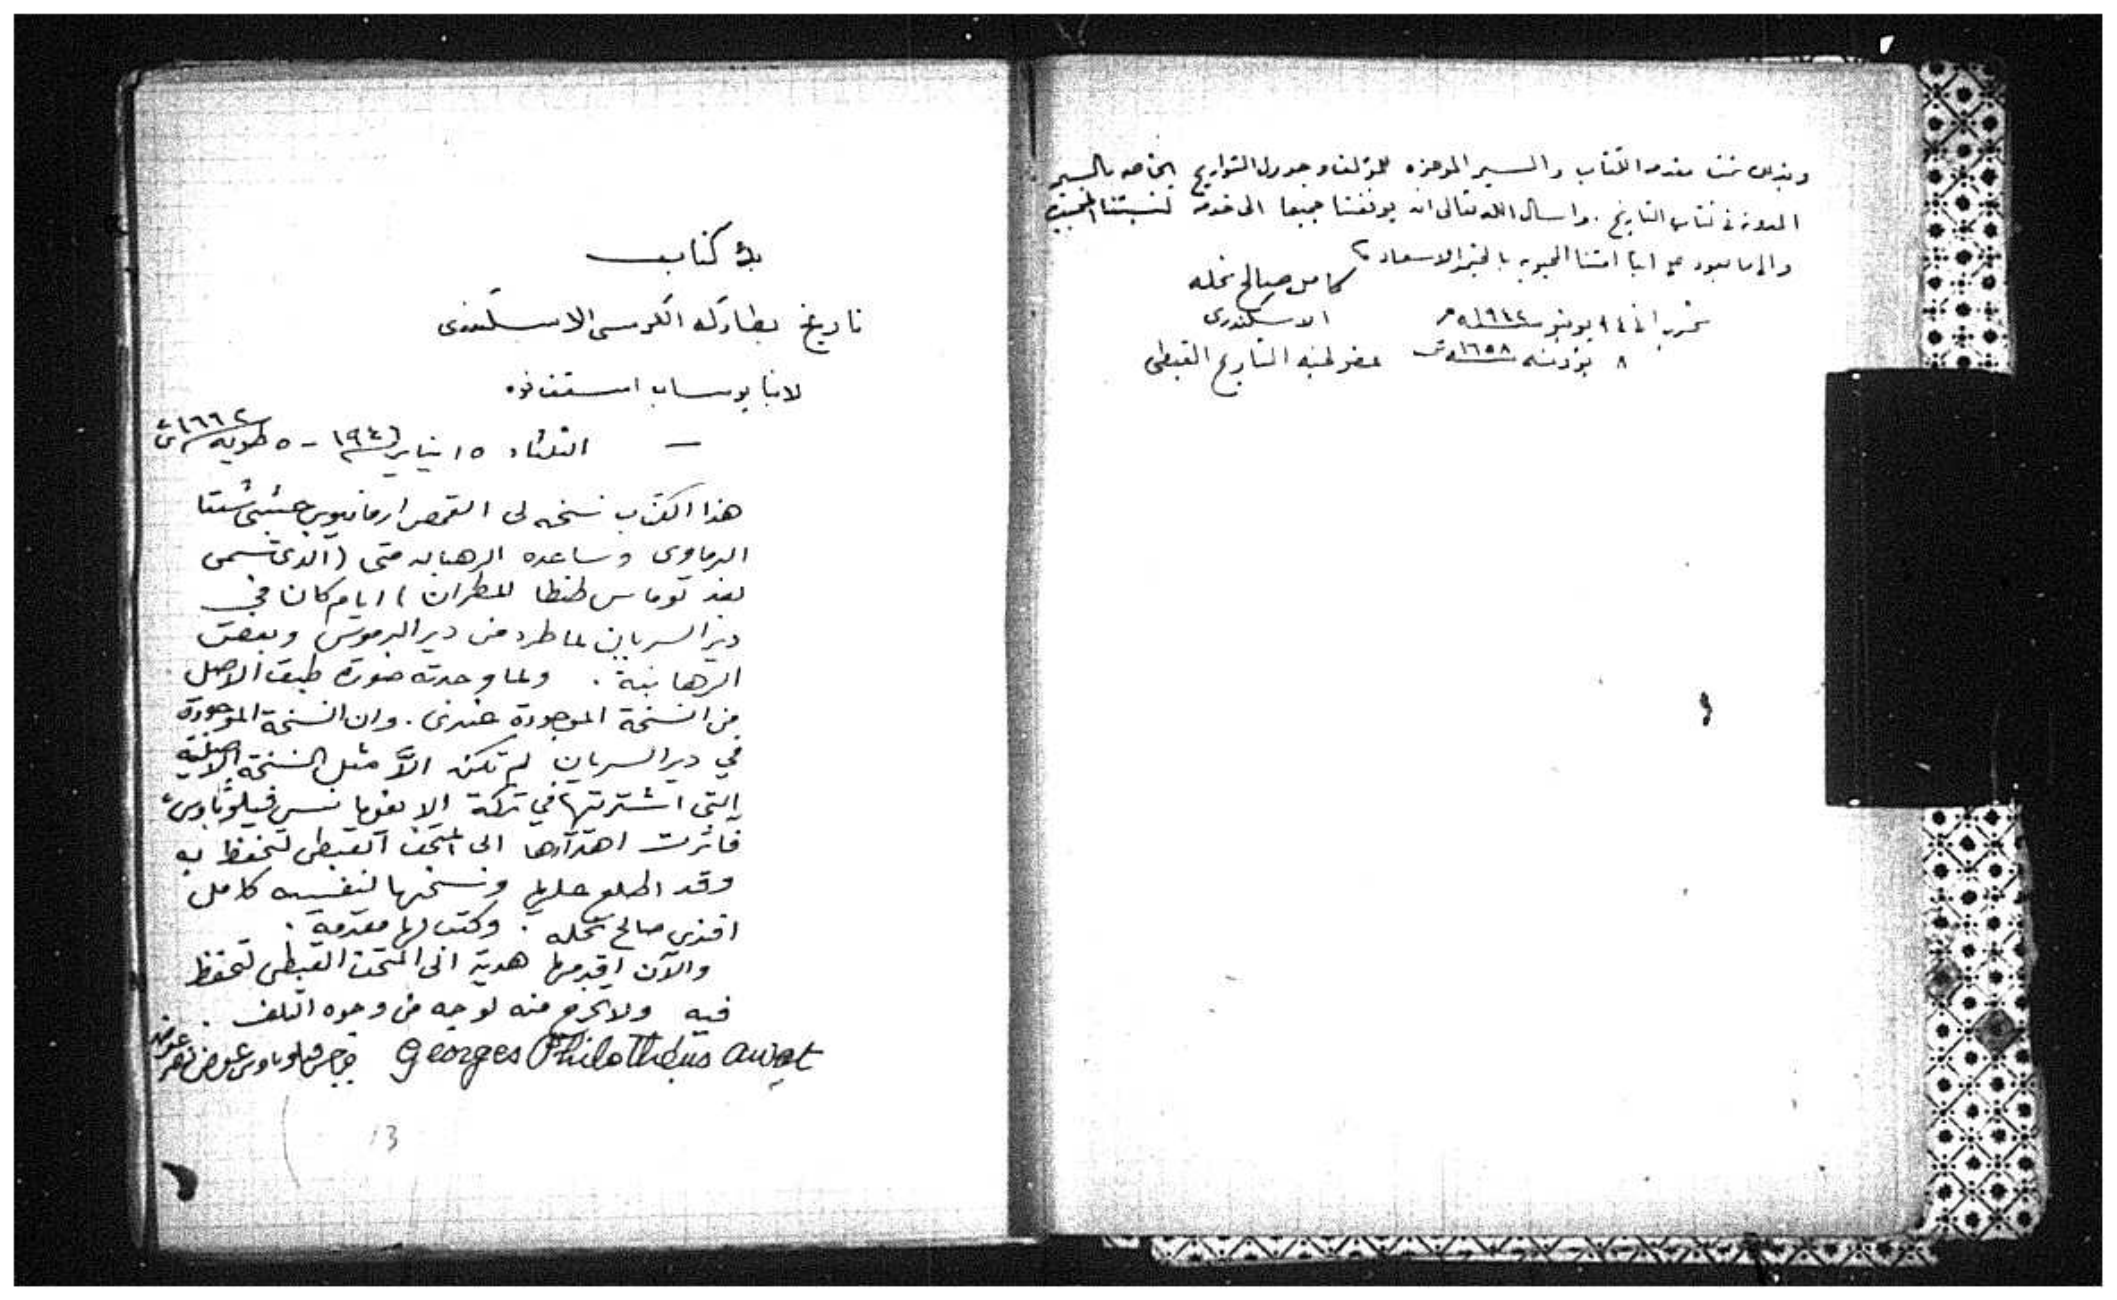 وبذلك تمت مقدمة الكتاب والسير الموجزه للمؤلف وجدول التواريخ الخاصه بالسير
المدونة فى كتاب التاريخ . واسأل الله تعالى ان يوفقنا جميعا الى خدمة كنيستنا
والى ما يعود على امتنا المحبوبه بالخير والاسعاد
كامل صالح نخله
الاسكندرى
تحريرا فى ١٤ يونيو سنة ١٩٤٢ م
٨ بؤونه سنة ١٦٥٨ ش عضو لجنه التاريخ القبطى
كتاب
تاريخ بطاركه الكرسى الاسكندرى
لانبا يوساب اسقف فوه
— الثلثاء ١٥ يناير ١٩٤٦ - ٥ طوبه ١٦٦٢ ش
هذا الكتاب نسخه لى القمص ارمانيوس حبشى شتا
البرماوى وساعده الرهبان متى (الذى تسمى
بعد توماس طنطا للمطران) ايام كان في
دير السريان لما طرد من دير البرموس وبعض
الرهابنة . ولما وجدته صورة طبق الاصل
من النسخة الموجودة عندى . وان النسخة الموجودة
في دير السريان لم تكن الاَّ مثل النسخة الاصلية
التي اشتريتها في تركة الايغومانس فيلوثاوس
فآثرت اهدآءها الى المتحف القبطى لتحفظ به
وقد اطلع عليها ونسخها لنفسه كامل
افندى صالح نخله . وكتب لها مقدمة .
والآن اقدمها هدية الى المتحف القبطى لتحفظ
فيه ولا تخرج منه لوجه من وجوه التلف .
Georges Philothéus Awat جرجس فيلوثاوس عوض
13